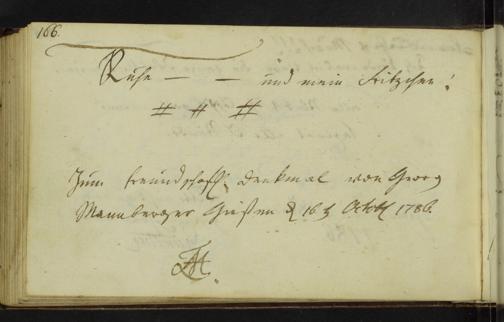 166.
Ruhe — — und mein Fritzchen!
# # #
Zum freundschaftl. Denkmal von Georg
Mannberger Gießen d 16 t Octob 1786.